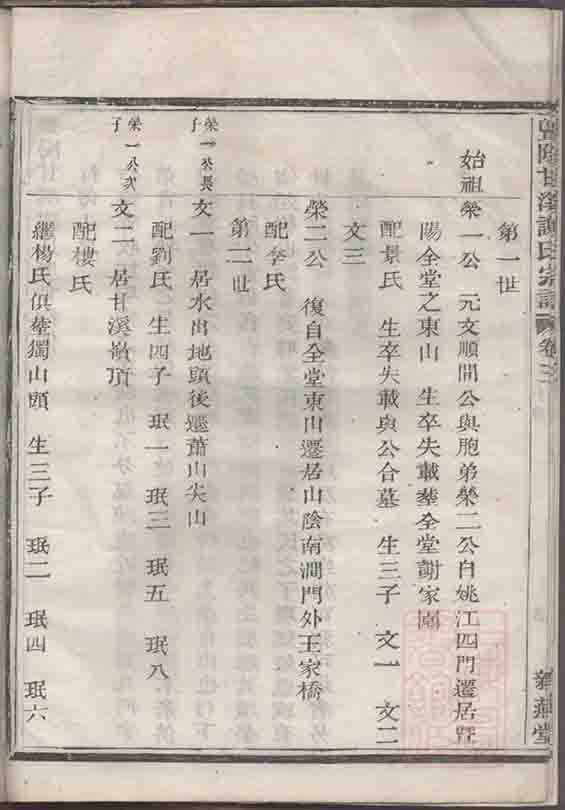 暨陽甘溪謝氏宗譜 卷之二
雍燕堂
第一世
始祖榮一公 元文順間公與胞弟榮二公自姚江四門遷居暨
陽全堂之東山 生卒失載葬全堂謝家園
配景氏 生卒失載與公合墓 生三子 文一 文二
文三
榮二公 復自全堂東山遷居山陰南澗門外王家橋
配李氏
第二世
榮一公長子
文一 居水出地頭後遷蕭山尖山
配劉氏 生四子 珉一 珉三 珉五 珉八
榮一公次子
文二 居甘溪嶺頂
配樓氏
繼楊氏俱葬獨山頭 生三子 珉二 珉四 珉六